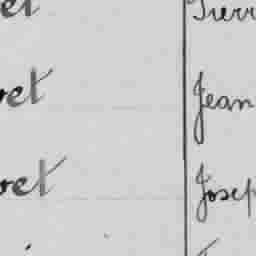 et Pierr
ret Jean
ret Josep